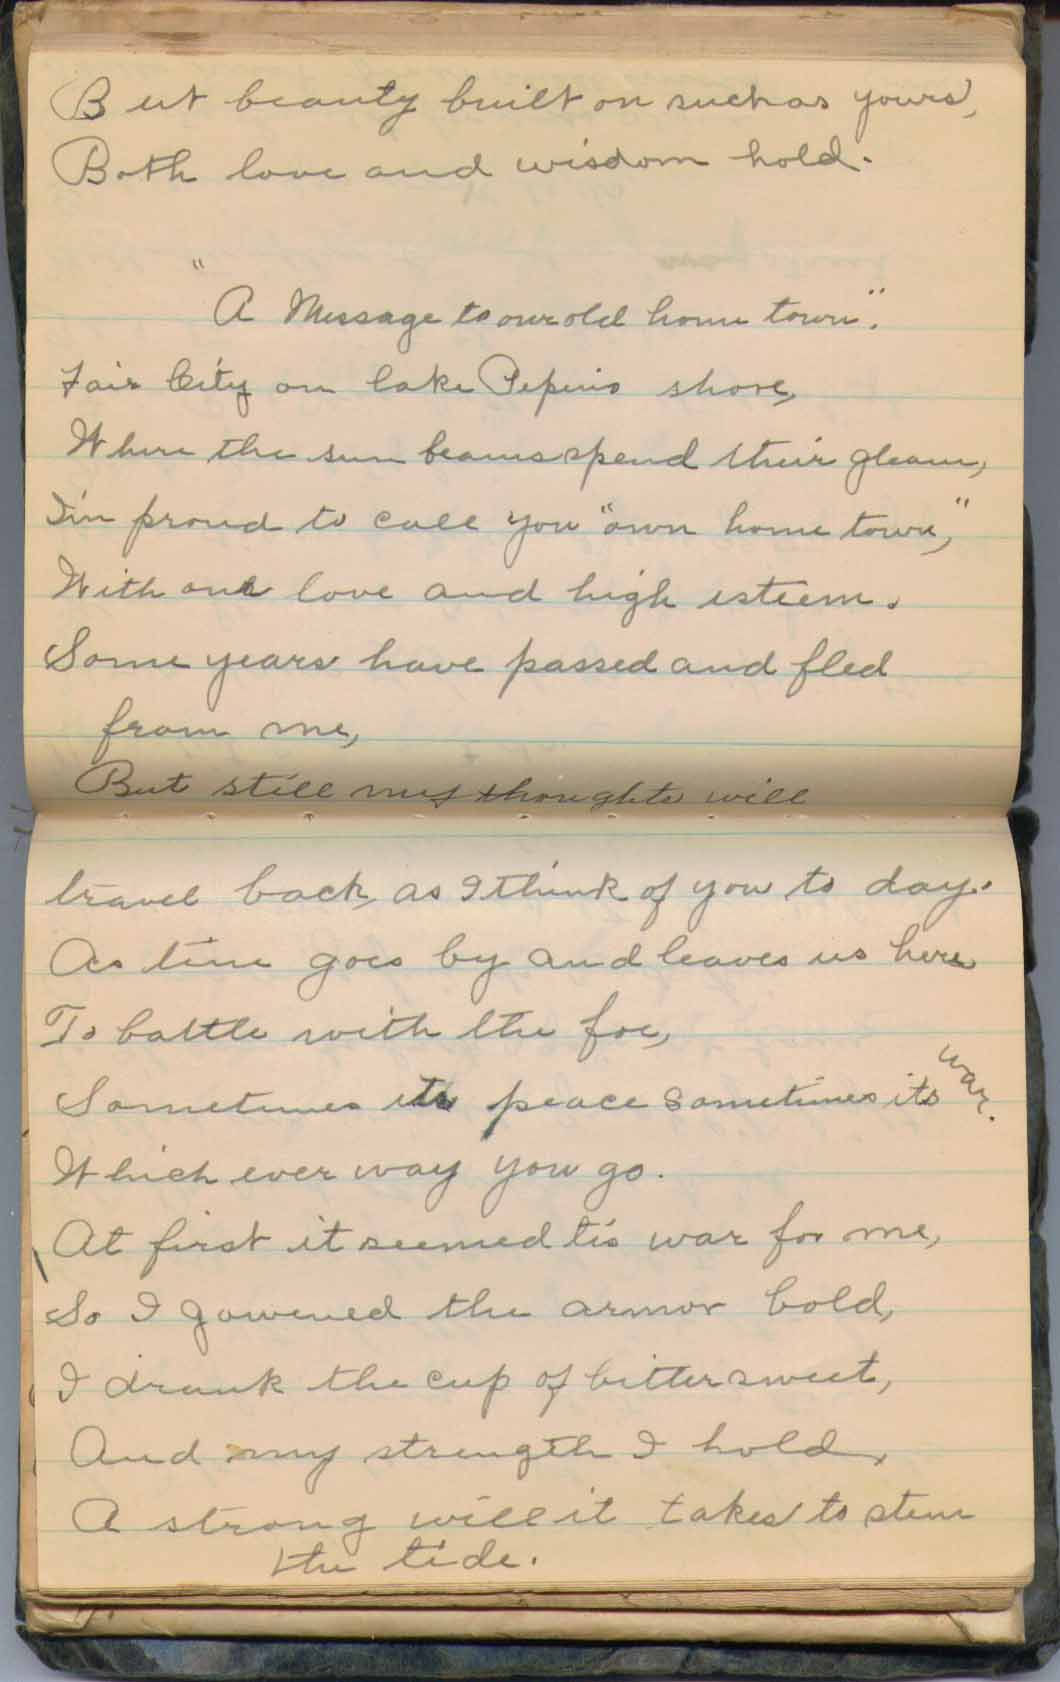 But beauty built on such as yours,
Both love and wisdom hold.
"A Message to our old home town".
Fair City on lake Pepins shore,
Where the sun beams spend their gleam,
I'm proud to call you "own home town,"
With our love and high esteem.
Some years have passed and fled
from me,
But still my thoughts will
travel back, as I think of you to day.
As time goes by and leaves us here
To battle with the foe,
Sometimes its peace sometimes its war.
Which ever way you go.
At first it seemed tis war for me,
So I gowened the armor bold,
I drank the cup of bitter sweet,
And my strength I hold,
A strong will it takes to stem
the tide.